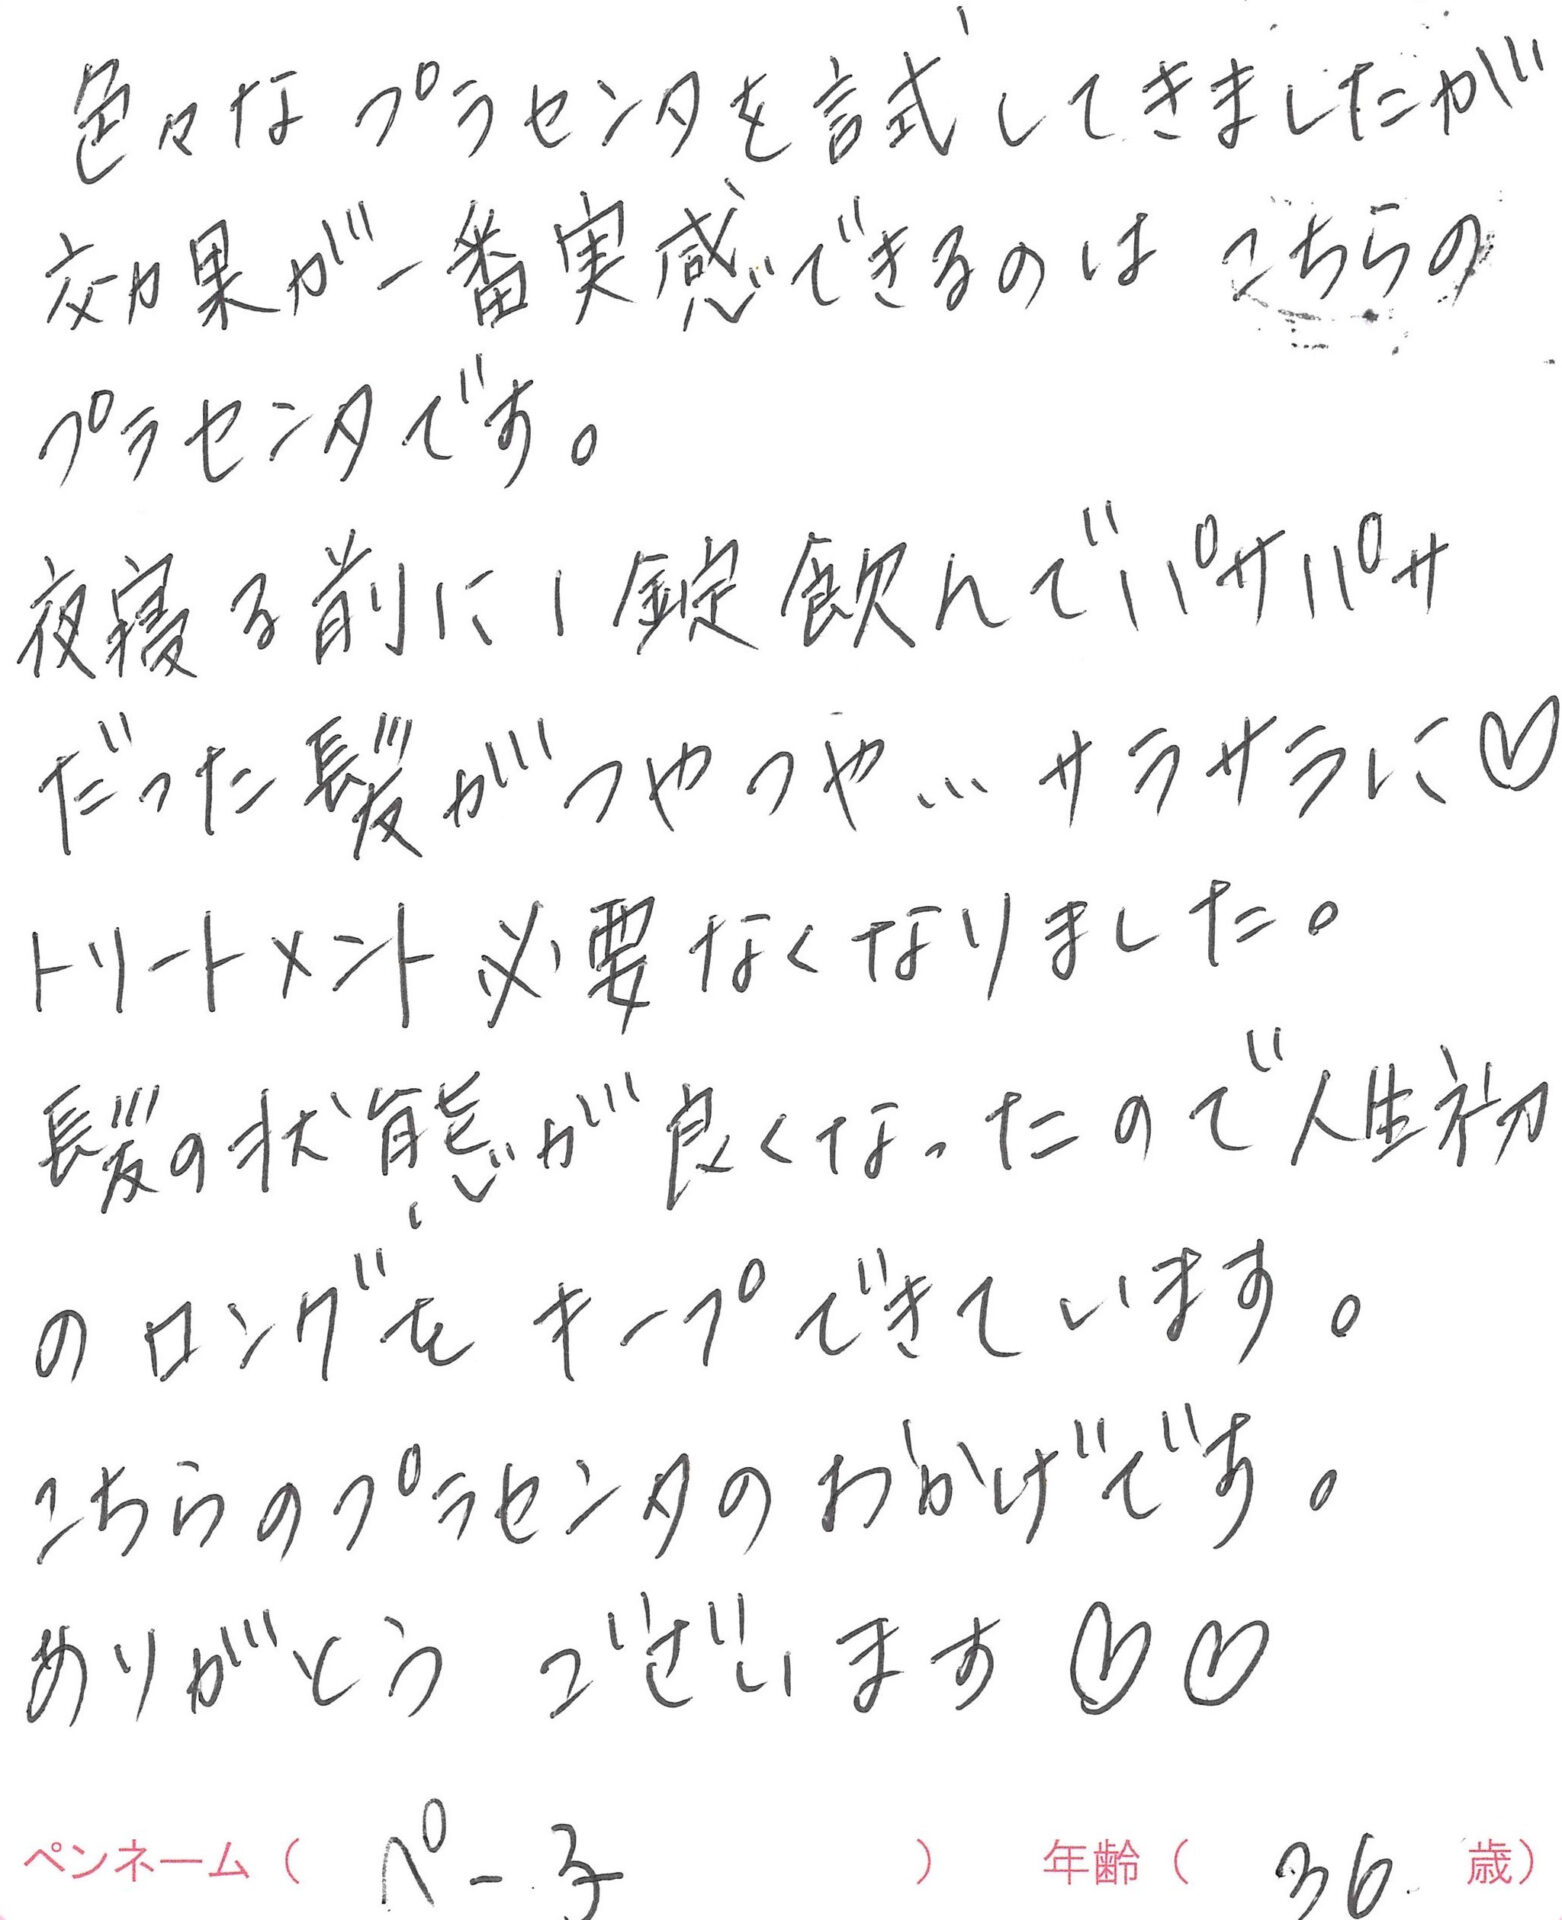 色々なプラセンタを試してきましたが
効果が一番実感できるのはこちらの
プラセンタです。
夜寝る前に1錠飲んでパサパサ
だった髪がつやつや…サラサラに♡
トリートメント必要なくなりました。
髪の状態が良くなったので人生初
のロングをキープできています。
こちらのプラセンタのおかげです。
ありがとうございます♡♡
ペンネーム（ ペー子 ） 年齢（ 36 歳）